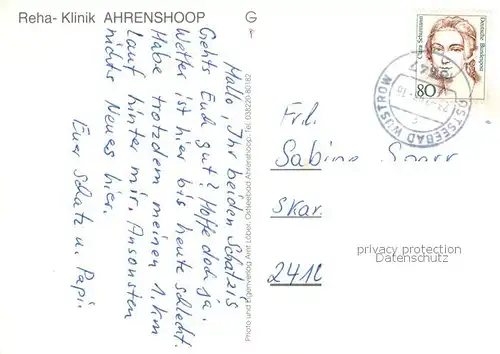 Reha- Klinik AHRENSHOOP
G
Hallo, Ihr beiden Schatzis
Gehts Euch gut? Hoffe doch ja.
Wetter ist hier bis heute schlecht.
Habe trotzdem meinen 1. km
Lauf hinter mir. Ansonsten
nichts Neues hier.
Euer Schatz u. Papi.
Photo und Eigenverlag Amt Löber, Ostseebad Ahrenshoop, Tel. 038220-80182
Deutsche Bundespost
Clara Schumann
80
OSTSEEBAD WUSTROW
Frl.
Sabine
Skar.
privacy protection
Datenschutz